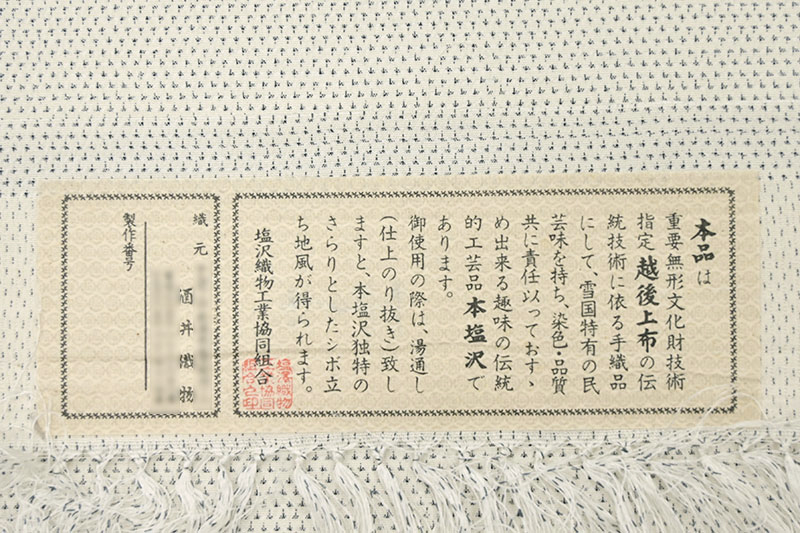 本品は
重要無形文化財技術
指定越後上布の伝
統技術に依る手織品
にして、雪国特有の民
芸味を持ち、染色・品質
共に責任以っておすゝ
め出来る趣味の伝統
的工芸品本塩沢で
あります。
御使用の際は、湯通し
(仕上のり抜き)致し
ますと、本塩沢独特の
さらりとしたシボ立
ち地風が得られます。
塩沢織物工業協同組合
織元 酒井織物
製作番号